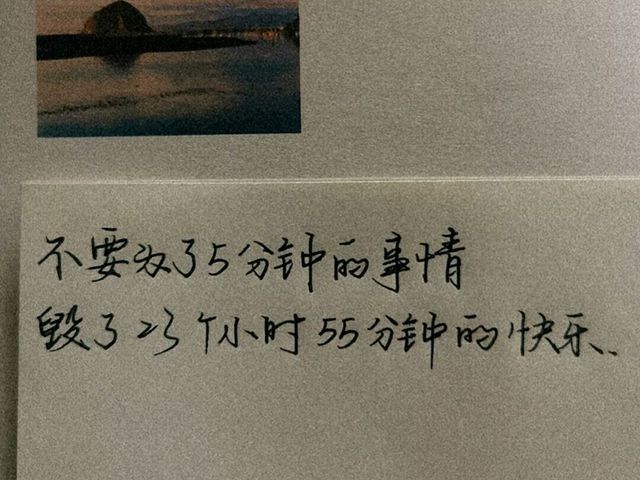 不要为了5分钟的事情
毁了23个小时55分钟的快乐、